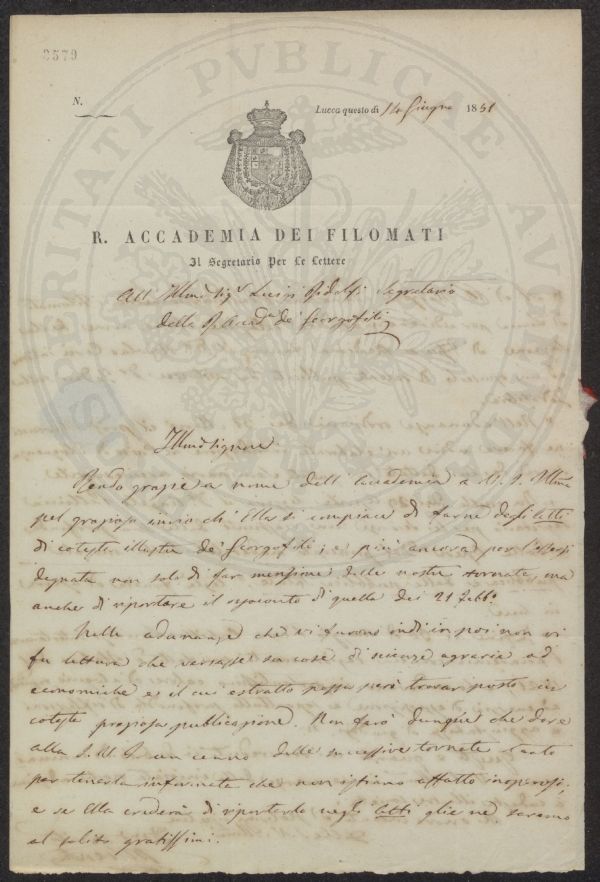 2579
PROSPERITATI PVBLICAE AVGENDAE
N.
Lucca questo dì 14 Giugno 1851
R. ACCADEMIA DEI FILOMATI
Il Segretario Per Le Lettere
All' Illmo Sigr Luigi Ridolfi Segretario
della R. Accda de' Georgofili
Illmo Signore
Rendo grazie a nome dell'Accademia a V. S. Illma
pel grazioso invio ch'Ella si compiace di farne degli Atti
di cotesta illustre de' Georgofili; e più ancora per l'essersi
degnata non solo di far menzione delle nostre tornate, ma
anche di riportare il resoconto di quella dei 21 Febbo.
Nelle adunanze che vi furono indi in poi non vi
fu lettura che versasse su cose di scienze agrarie ad
economiche e il cui estratto possa però trovar posto in
cotesta pregiosa pubblicazione. Non farò dunque che dare
alla S. V. I. un cenno delle successive tornate tanto
per tenerla informata che non istiamo affatto inoperosi.
e se Ella crederà di riportarlo negli Atti gliene saremo
al solito gratissimi.